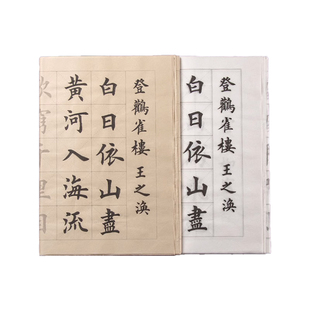 登鸛雀樓 王之渙
白日依山盡
黃河入海流
欲窮千里目
登鸛雀樓 王之渙
白日依山盡